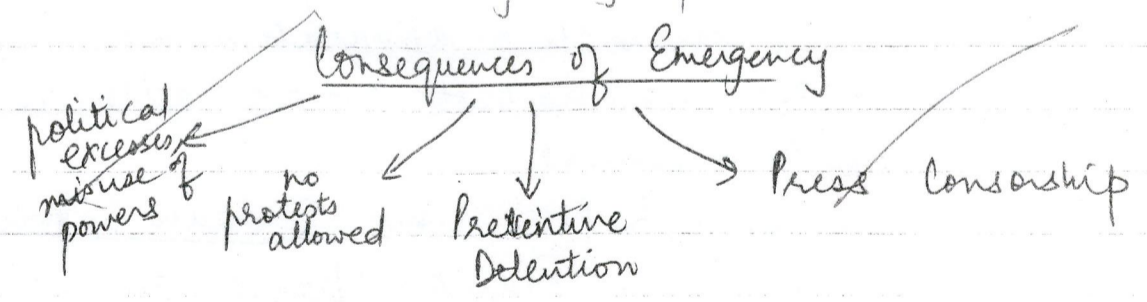 Consequences of Emergency
political
excesses,
misuse of
powers
no
protests
allowed
Preventive
Detention
Press Censorship